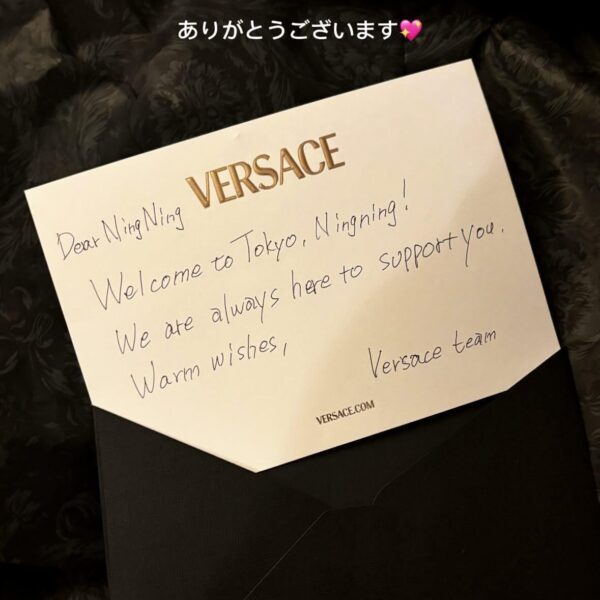 ありがとうございます💖
VERSACE
Dear NingNing
Welcome to Tokyo, Ningning!
We are always here to support you.
Warm wishes,
Versace team
VERSACE.COM